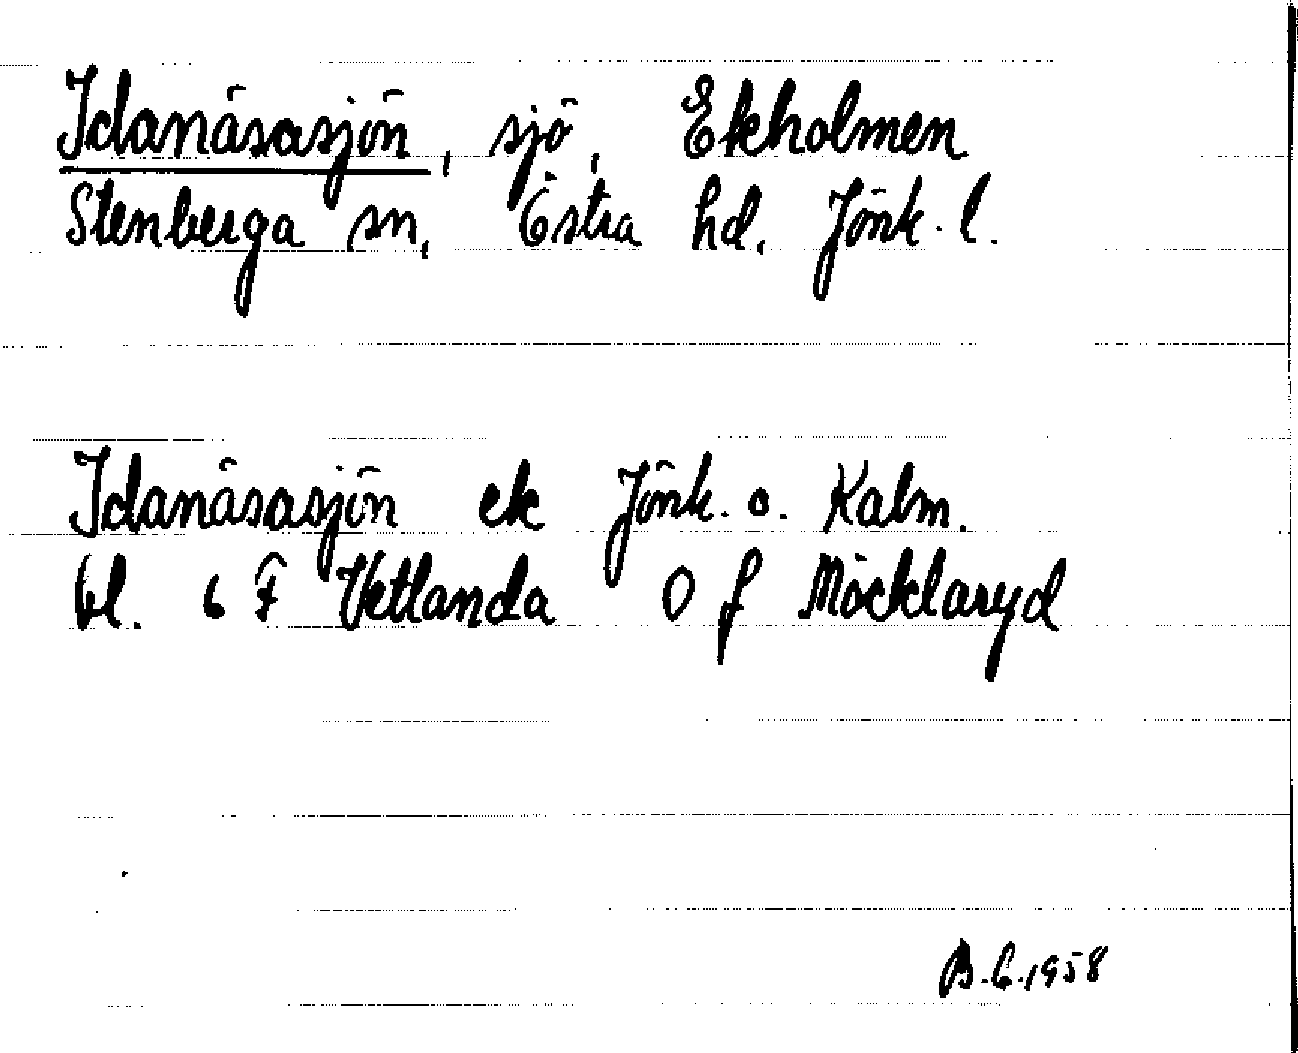 Idanäsasjön, sjö, Ekholmen
Stenberga sn, Östra hd, Jönk. l.
Idanäsasjön ek Jönk. o. Kalm.
bl. 6 F Vetlanda 0 f Möcklaryd
B.G.1958